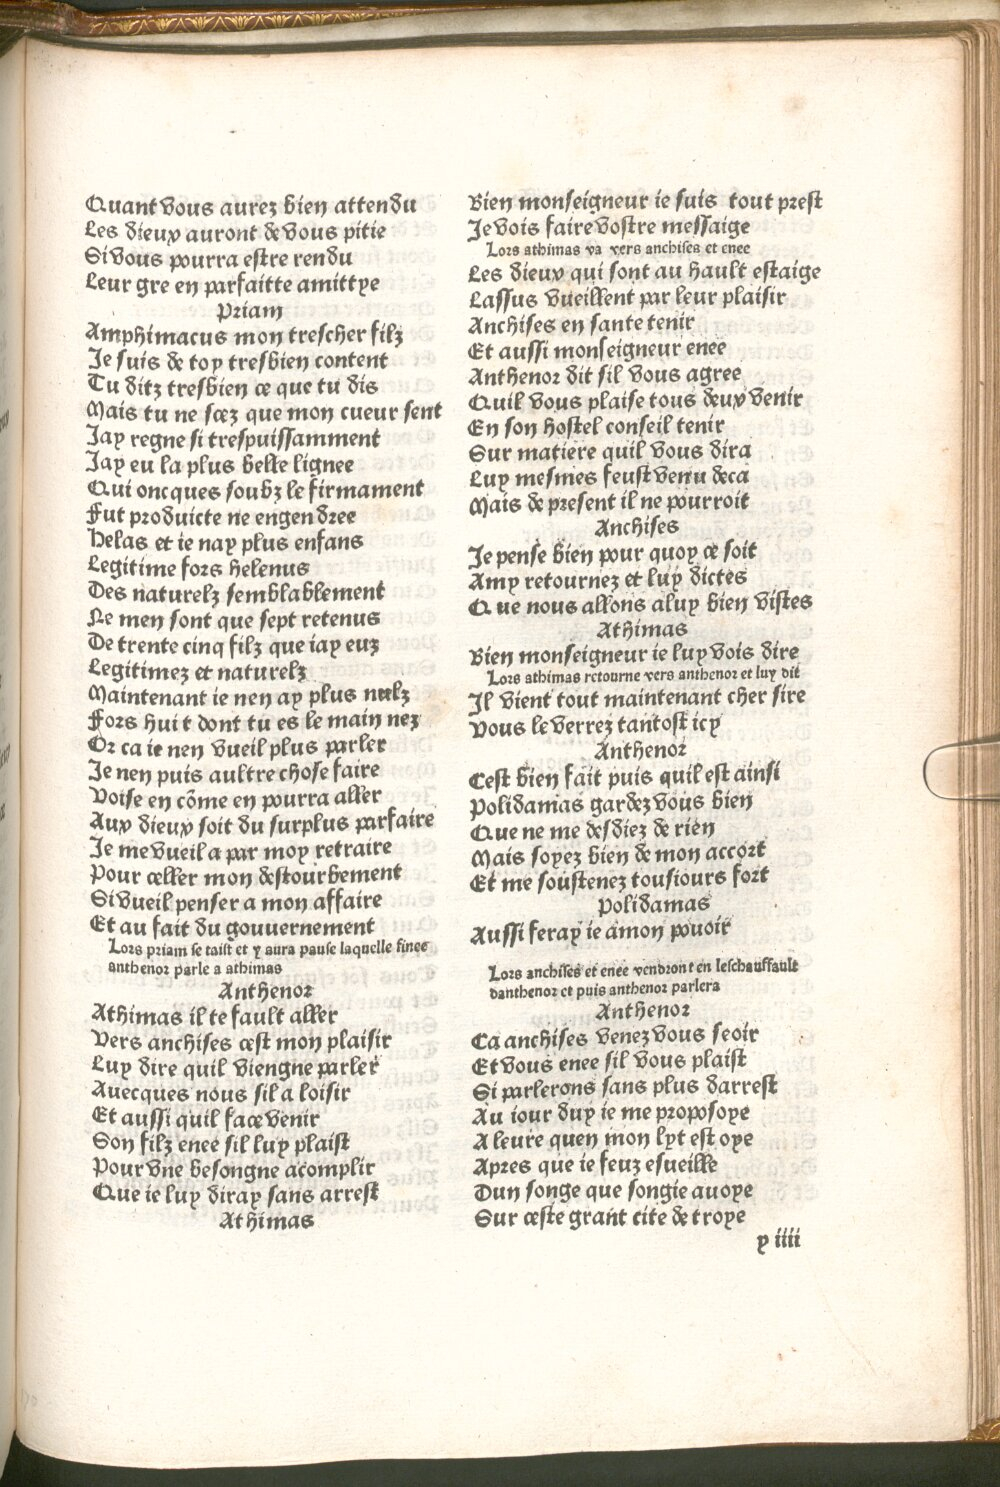 Quant vous aurez bien attendu
Les dieux auront de vous pitie
Si vous pourra estre rendu
Leur gre en parfaitte amittye
Priam
Amphimacus mon trescher filz
Je suis de toy tresbien content
Tu ditz tresbien ce que tu dis
Mais tu ne scez que mon cueur sent
Jay regne si trespuissamment
Jay eu la plus belle lignee
Qui oncques soubz le firmament
Fut produicte ne engendree
Helas et ie nay plus enfans
Legitime fors helenus
Des naturelz semblablement
Ne men sont que sept retenus
De trente cinq filz que iay euz
Legitimez et naturelz
Maintenant ie nen ay plus nulz
Fors huit dont tu es le main nez
Or ca ie nen vueil plus parler
Je nen puis aultre chose faire
Voise en cõme en pourra aller
Aux dieux soit du surplus parfaire
Je me vueil a par moy retraire
Pour celler mon destourbement
Si vueil penser a mon affaire
Et au fait du gouuernement
Lors priam se taist et y aura pause laquelle finee
anthenor parle a athimas
Anthenor
Athimas il te fault aller
Vers anchises cest mon plaisir
Luy dire quil viengne parler
Auecques nous sil a loisir
Et aussi quil face venir
Son filz enee sil luy plaist
Pour vne besongne acomplir
Que ie luy diray sans arrest
Athimas
Bien monseigneur ie suis tout prest
Je vois faire vostre messaige
Lors athimas va vers anchises et enee
Les dieux qui sont au hault estaige
Lassus vueillent par leur plaisir
Anchises en sante tenir
Et aussi monseigneur enee
Anthenor dit sil vous agree
Quil vous plaise tous deux venir
En son hostel conseil tenir
Sur matiere quil vous dira
Luy mesmes feust venu deca
Mais de present il ne pourroit
Anchises
Je pense bien pour quoy ce soit
Amy retournez et luy dictes
Que nous allons a luy bien vistes
Athimas
Bien monseigneur ie luy vois dire
Lors athimas retourne vers anthenor et luy dit
Il vient tout maintenant cher sire
Vous le verrez tantost icy
Anthenor
Cest bien fait puis quil est ainsi
Polidamas gardez vous bien
Que ne me desdiez de rien
Mais soyez bien de mon accort
Et me soustenez tousiours fort
Polidamas
Aussi feray ie a mon pouoir
Lors anchises et enee vendront en leschauffault
danthenor et puis anthenor parlera
Anthenor
Ca anchises venez vous seoir
Et vous enee sil vous plaist
Si parlerons sans plus darrest
Au iour duy ie me proposoye
A leure quen mon lyt estoye
Apres que ie feuz esueille
Dun songe que songie auoye
Sur ceste grant cite de troye
y iiii